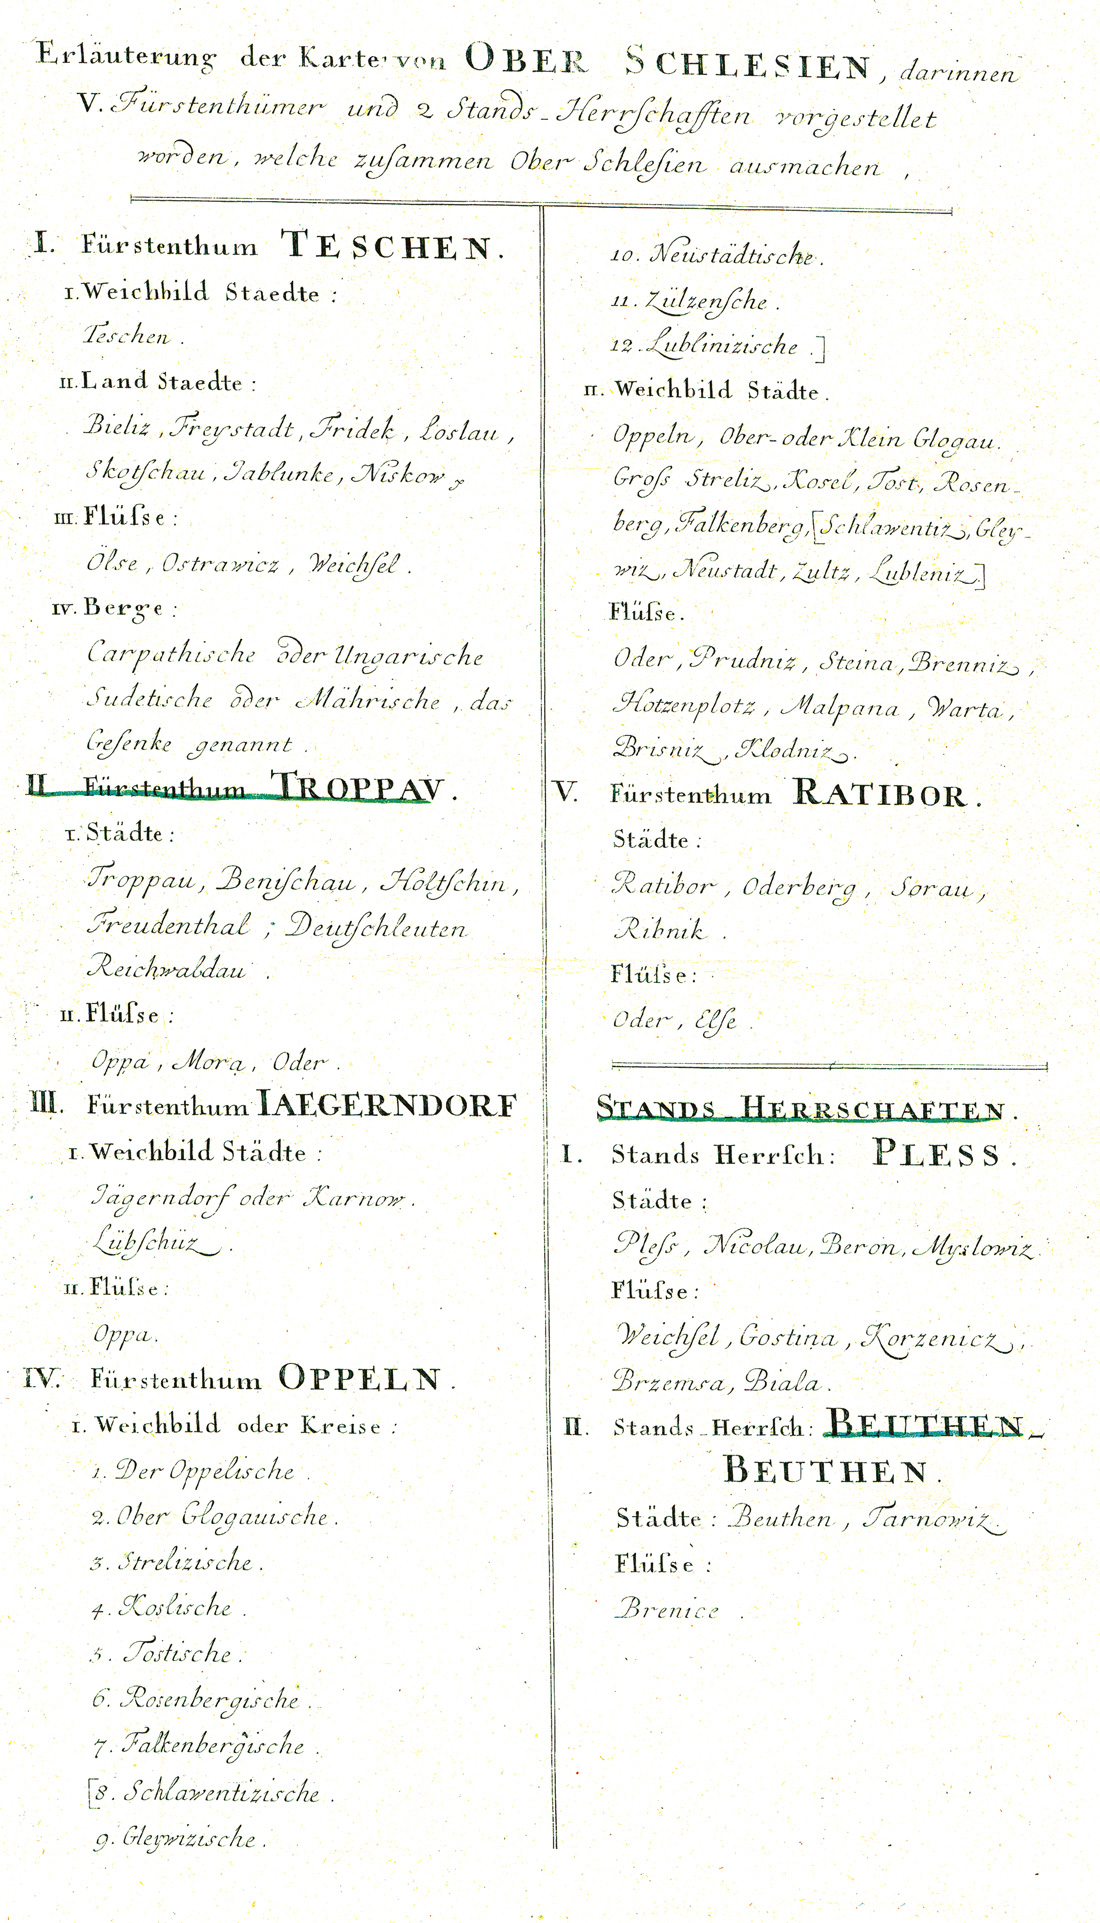 Erläuterung der Karte von OBER SCHLESIEN, darinnen
V. Fürstenthümer und 2 Stands-Herrſchafften vorgestellet
worden, welche zuſammen Ober Schleſien ausmachen,
I. Fürstenthum TESCHEN.
I. Weichbild Staedte:
Teschen.
II. Land Staedte:
Bieliz, Freystadt, Fridek, Loslau,
Skotſchau, Jablunke, Niskow
III. Flüſse:
Ölse, Ostrawicz, Weichſel.
IV. Berge:
Carpathische oder Ungarische
Sudetische oder Mährische, das
Geſenke genannt.
II Fürstenthum TROPPAV.
I. Städte:
Troppau, Beniſchau, Holtſchin,
Freudenthal; Deutſchleuten
Reichwaldau.
II. Flüſse:
Oppa, Mora, Oder.
III. Fürstenthum IAEGERNDORF
I. Weichbild Städte:
Jägerndorf oder Karnow.
Lübſchüz.
II. Flüſse:
Oppa.
IV. Fürstenthum OPPELN.
I. Weichbild oder Kreise:
1. Der Oppelische.
2. Ober Glogauische.
3. Strelizische.
4. Koslische.
5. Tostische.
6. Rosenbergische.
7. Falkenbergische.
[8. Schlawentizische.
9. Gleywizische.
10. Neustädtische.
11. Zülzenſche.
12. Lublinizische.]
II. Weichbild Städte.
Oppeln, Ober- oder Klein Glogau.
Groſs Streliz, Kosel, Tost, Rosen-
berg, Falkenberg, [Schlawentiz, Gley-
wiz, Neustadt, Zultz, Lubleniz.]
Flüſse.
Oder, Prudniz, Steina, Brenniz,
Hotzenplotz, Malpana, Warta,
Brisniz, Klodniz.
V. Fürstenthum RATIBOR.
Städte:
Ratibor, Oderberg, Sorau,
Ribnik.
Flüſse:
Oder, Elſe.
STANDS-HERRSCHAFTEN.
I. Stands Herrſch: PLESS.
Städte:
Pleſs, Nicolau, Beron, Myslowiz.
Flüſse:
Weichſel, Gostina, Korzenicz,
Brzemsa, Biala.
II. Stands-Herrſch: BEUTHEN-
BEUTHEN.
Städte: Beuthen, Tarnowiz.
Flüſse:
Brenice.